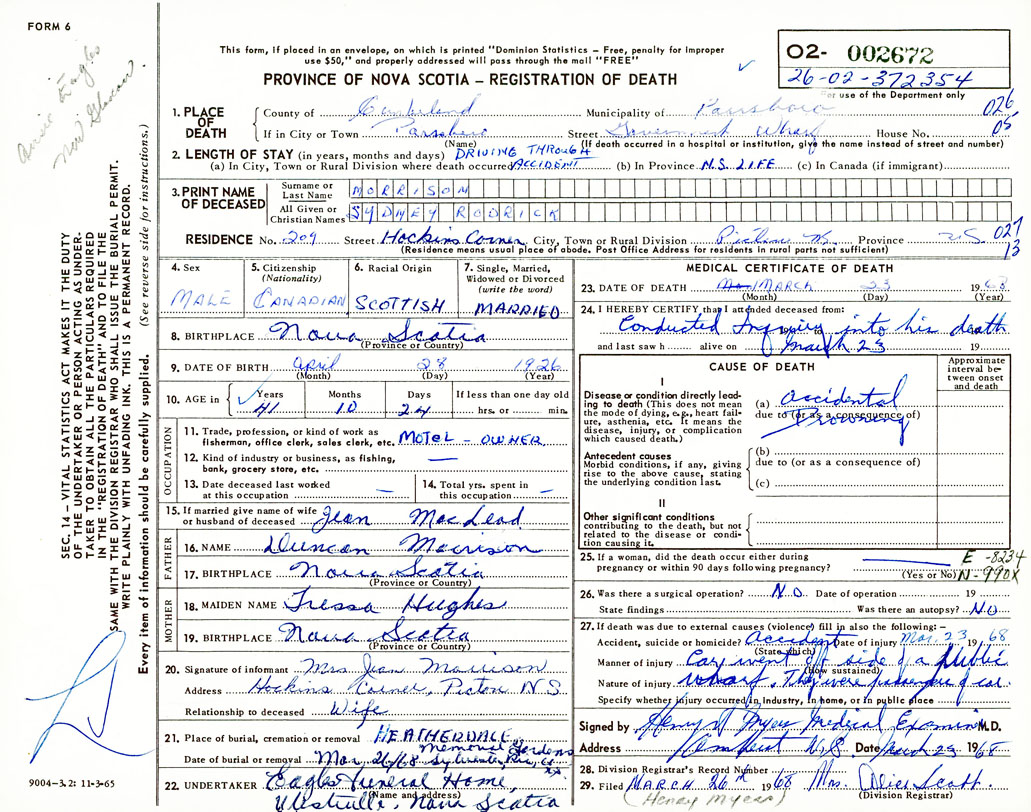 FORM 6
This form, if placed in an envelope, on which is printed "Dominion Statistics – Free, penalty for improper
use $50," and properly addressed will pass through the mail "FREE"
PROVINCE OF NOVA SCOTIA – REGISTRATION OF DEATH
O2- 002672
26-02-372354
For use of the Department only
026
05
New Glasgow.
1. PLACE OF DEATH
County of Cumberland Municipality of Parrsboro
If in City or Town Parrsboro Street Government Wharf House No.
(Name) (If death occurred in a hospital or institution, give the name instead of street and number)
2. LENGTH OF STAY (in years, months and days) DRIVING THROUGH
(a) In City, Town or Rural Division where death occurred ACCIDENT (b) In Province N.S. LIFE (c) In Canada (if immigrant)
3. PRINT NAME OF DECEASED
Surname or Last Name MORRISON
All Given or Christian Names SYDNEY RODRICK
RESIDENCE No. 209 Street Hockins Corner, City, Town or Rural Division Pictou Province N.S. 027
(Residence means usual place of abode. Post Office Address for residents in rural parts not sufficient) 13
4. Sex MALE
5. Citizenship (Nationality) CANADIAN
6. Racial Origin SCOTTISH
7. Single, Married, Widowed or Divorced (write the word) MARRIED
8. BIRTHPLACE Nova Scotia
(Province or Country)
9. DATE OF BIRTH April 28 1926
(Month) (Day) (Year)
10. AGE in Years 41 Months 10 Days 24 If less than one day old hrs. or min.
OCCUPATION
11. Trade, profession, or kind of work as fisherman, office clerk, sales clerk, etc. MOTEL – OWNER
12. Kind of industry or business, as fishing, bank, grocery store, etc. —
13. Date deceased last worked at this occupation —
14. Total yrs. spent in this occupation —
15. If married give name of wife or husband of deceased Jean MacLeod
FATHER
16. NAME Duncan Morrison
17. BIRTHPLACE Nova Scotia
(Province or Country)
MOTHER
18. MAIDEN NAME Tressa Hughes
19. BIRTHPLACE Nova Scotia
(Province or Country)
20. Signature of informant Mrs Jean Morrison
Address Hockins Corner, Pictou N.S.
Relationship to deceased Wife
21. Place of burial, cremation or removal HEATHERDALE Memorial Gardens
Date of burial or removal Mar. 26/68 Sylvester,
22. UNDERTAKER Eagles Funeral Home,
(Name and address)
Westville, Nova Scotia
MEDICAL CERTIFICATE OF DEATH
23. DATE OF DEATH MARCH 23 1968
(Month) (Day) (Year)
24. I HEREBY CERTIFY that I attended deceased from:
Conducted Inquiry into his death
and last saw h alive on March 23 19
CAUSE OF DEATH
Approximate interval between onset and death
I
Disease or condition directly leading to death (This does not mean the mode of dying, e.g., heart failure, asthenia, etc. It means the disease, injury, or complication which caused death.)
(a) Accidental
due to (or as a consequence of)
Drowning
Antecedent causes
Morbid conditions, if any, giving rise to the above cause, stating the underlying condition last.
(b)
due to (or as a consequence of)
(c)
II
Other significant conditions
contributing to the death, but not related to the disease or condition causing it.
25. If a woman, did the death occur either during pregnancy or within 90 days following pregnancy?
(Yes or No)
E-8234
N-990X
26. Was there a surgical operation? NO Date of operation 19
State findings Was there an autopsy? NO
27. If death was due to external causes (violence) fill in also the following: –
Accident, suicide or homicide? Accident Date of injury Mar. 23 1968
(State which)
Manner of injury Car went off side of a public
(How sustained)
Nature of injury wharf. They were passengers of car.
Specify whether injury occurred in industry, in home, or in public place
Signed by Henry Myers Medical Examiner M.D.
Address Amherst N.S. Date March 23 1968
28. Division Registrar's Record Number
29. Filed MARCH 26th 1968 Mrs. Alice Scott.
(Henry Myers) (Division Registrar)
SEC. 14 – VITAL STATISTICS ACT MAKES IT THE DUTY
OF THE UNDERTAKER OR PERSON ACTING AS UNDER-
TAKER TO OBTAIN ALL THE PARTICULARS REQUIRED
IN THE "REGISTRATION OF DEATH" AND TO FILE THE
SAME WITH THE DIVISION REGISTRAR WHO SHALL ISSUE THE BURIAL PERMIT.
WRITE PLAINLY WITH UNFADING INK. THIS IS A PERMANENT RECORD.
Every item of information should be carefully supplied. (See reverse side for instructions.)
9004–3.2: 11-3-65